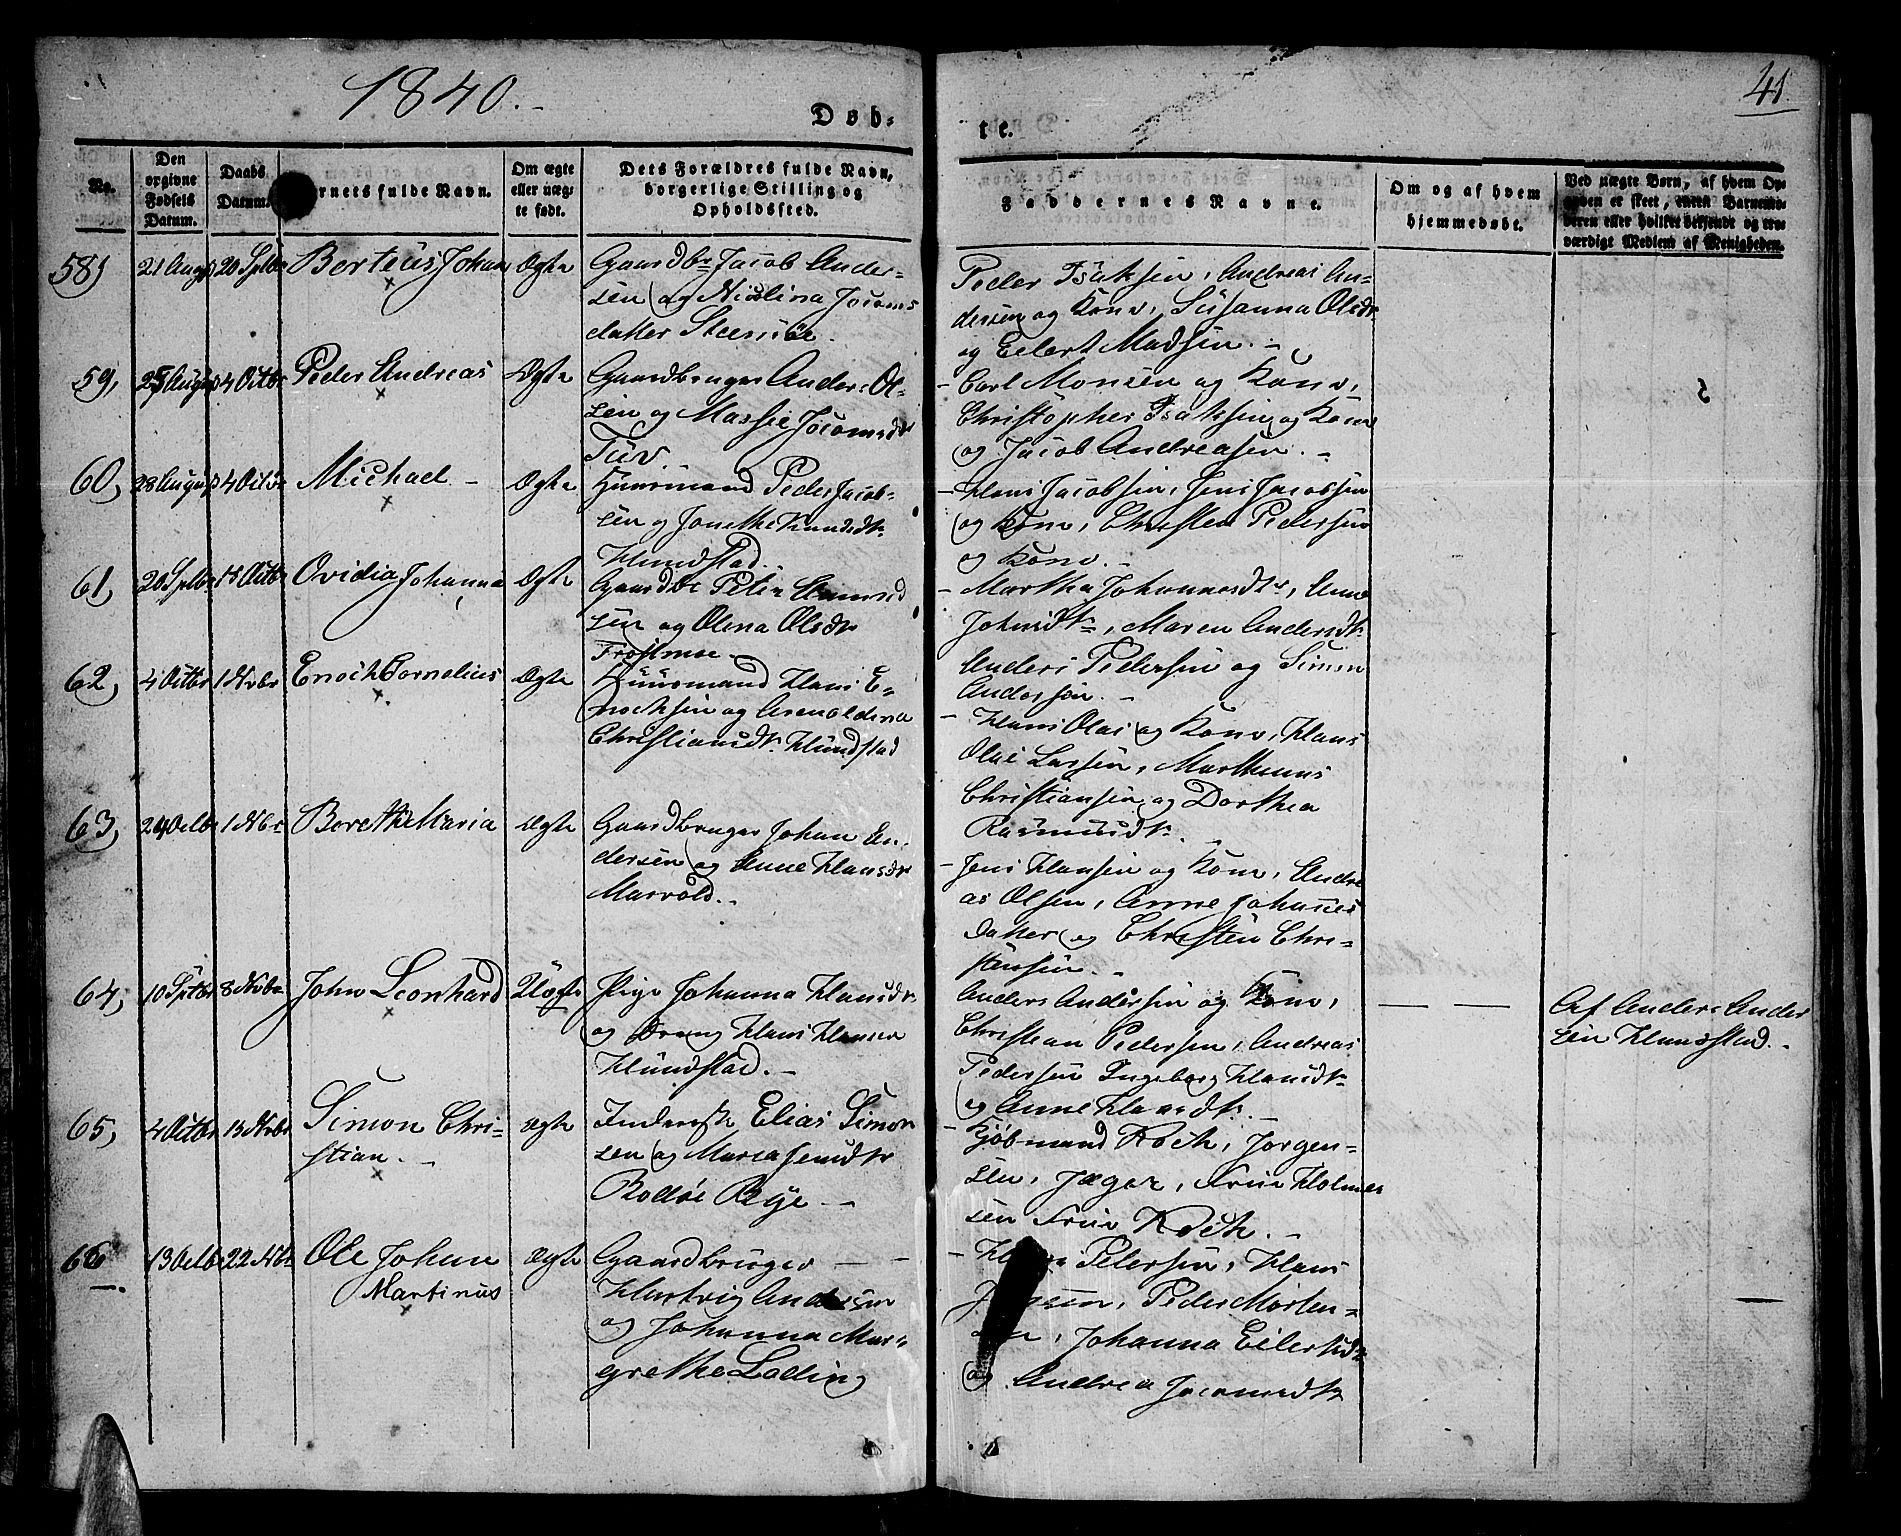 1840.
41.
Døb-
te.
No.
Den
opgivne
Fødsels
Datum.
Daabs
Datum.
rnets fulde Navn.
Om ægte
eller uæg-
te født.
Dets Forældres fulde Navn,
borgerlige Stilling og
Opholdsfted.
Faddernes Navne.
Om og af hvem
hjemmedøbt.
Ved uægte Børn, af hvem Op-
værdigt Medlem af Menigheden.
58, 21 August 20 Sptbr Berteus Johan Ægte Gaardbr Jacob Ander-
sen og Nicolina Jocoms
datter Steenøe.
Peder Isaksen, Andreas An-
dersen og Kone, Susanna Olsdr
og Eilert Madsen. -
59, 25 August 4 Octbr Peder Andreas Ægte Gaardbruger Anders Ol-
sen og Massie Jocomsdr
Tuv.
- Carl Monsen og Kone,
Christopher Isaksen og Kone
og Jacob Andreasen. -
60, 28 August 4 Octbr Michael - Ægte Huusmand Peder Jacob-
sen og Janethe Knudsdr
Hundstad.
- Hans Jacobsen, Jens Jacobsen
og Kone, Christen Pedersen
og Kone. -
61, 20 Sptbr 18 Octbr Ovidia Johanna Ægte Gaardbr Peter Amund
sen og Olena Olsdr
- Martha Johannesdtr, Anne
Johnsdtr, Maren Andersdtr
Anders Pedersen og Simon
Andersen. -
62, 4 Octbr 1 Nvbr Enoch Cornelius Ægte Huusmand Hans E-
nochsen og Arenoldina
Christiansdtr Hundstad
- Hans Olai og Kone, Hans
Olai Larsen, Marthinus
Christiansen og Dorthea
Rasmusdtr.
63, 24 Octbr 1 Nvbr Berethe Maria Ægte Gaardbruger Johan An-
dersen og Anne Hansdr
Marvold. -
- Jens Hansen og Kone, Andre
as Olsen, Anne Johannes
datter og Christen Chri-
stensen. -
64, 10 Sptbr 8 Nvbr John Leonhard Uægte Pige Johanna Hansdtr
og Dreng Hans Hansen
Hundstad. -
Anders Andersen og Kone,
Christian Pedersen, Andreas
Pedersen Ingeborg Hansdtr
og Anne Hansdtr. -
Af Anders Ander
sen Hundstad. -
65, 4 Octbr 15 Nvbr Simon Chri-
stian. - ægte Inderst Elias Simon
sen og Maria Jensdtr
Bodøe Bye -
- Kjøbmand Koch, Jørgen-
sen, Jæger, Frue Holmer
sen Frue Koch. -
66 13 Octb 22 Nbr Ole Johan
Martinus Ægte Gaardbruger - -
Hartvig Andersen
og Johanna Mar-
grethe Løding
- Pedersen, Hans
Jensen, Peder Morten-
Johanna Eilertsdtr
og Andrea Jocomsdtr